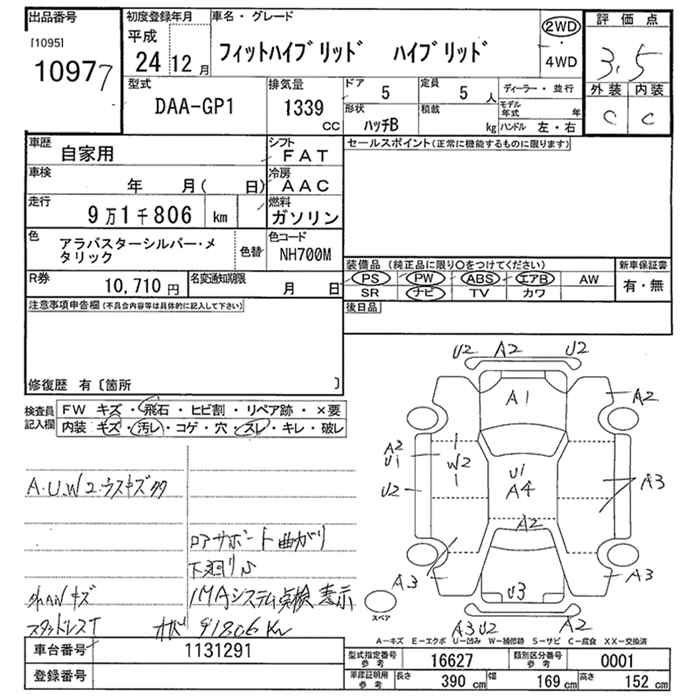 出品番号
[1095]
10977
初度登録年月
平成
24 12月
車名・グレード
フィットハイブリッド ハイブリッド
2WD
4WD
評価点
3.5
外装 内装
C C
型式
DAA-GP1
排気量
1339
CC
ドア
5
定員
5 人
形状
ハッチB
積載
kg
ディーラー・並行
モデル年式 年
ハンドル 左・右
車歴
自家用
シフト
FAT
車検
年 月( 日)
冷房
AAC
走行
9万1千806 km
燃料
ガソリン
色
アラバスターシルバー・メタリック
色替
色コード
NH700M
R券
10,710 円
名変通知期限
月 日
セールスポイント(正常に機能するものに限ります)
装備品(純正品に限り〇をつけてください)
PS PW ABS エアB AW
SR ナビ TV カワ
新車保証書
有・無
後日品
注意事項申告欄(不具合内容等は具体的に記入して下さい)
修復歴 有〔箇所 〕
検査員記入欄
FW キズ・飛石・ヒビ割・リペア跡・×要
内装 キズ・汚レ・コゲ・穴・スレ・キレ・破レ
A.U.W2.ウスキズ
ロアサポート曲がり
下廻りS
外ハンキズ
IMAシステム点検表示
スタッドレスT
91806 Km
U2 A2 U2
A1
A2
A2
U1
U2
W2
U1
A4
A3
A2
A3
U3
A3
A3 U2
A2
スペア
A-キズ E-エクボ U-凹み W-補修跡 S-サビ C-腐食 XX-交換済
車台番号
1131291
登録番号
型式指定番号
参考
16627
類別区分番号
参考
0001
車庫証明用
参考
長さ
390 cm
幅
169 cm
高さ
152 cm